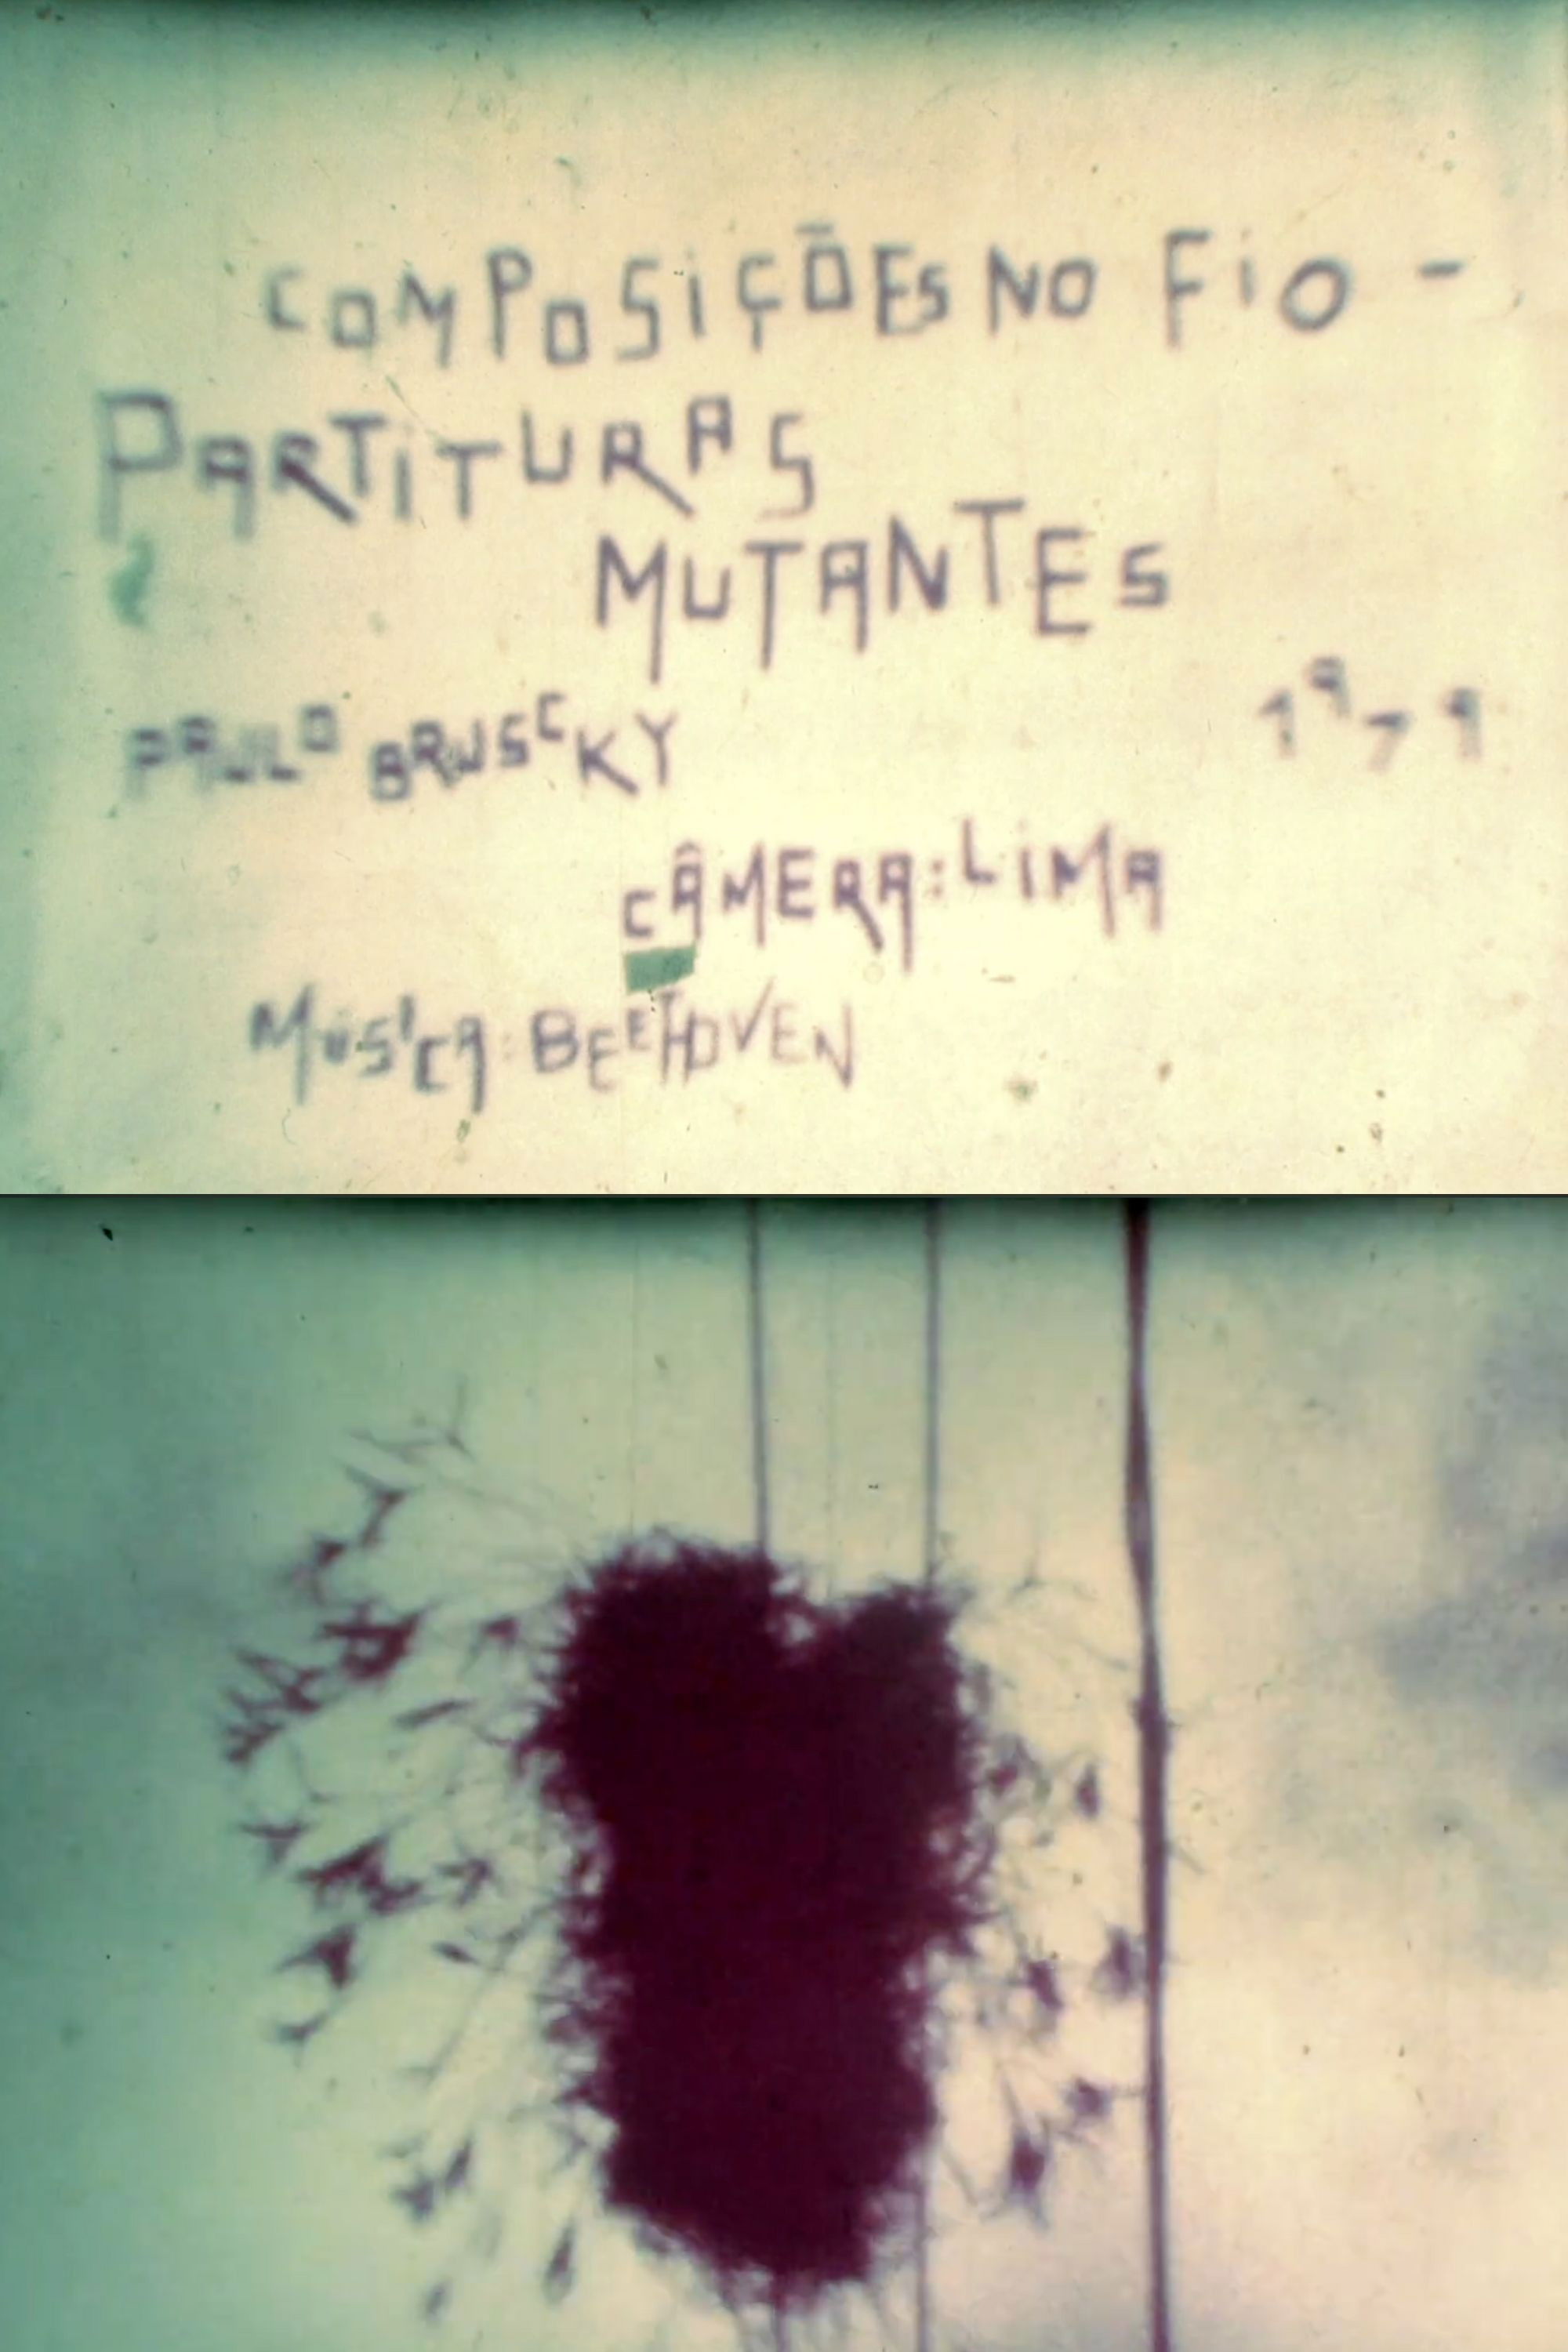 COMPOSiÇÕES NO FiO -
PARTiTURAS
MUTANTES
PAULO BRUSCKY 1979
CÂMERA: LiMA
MÚSiCA: BEETHOVEN